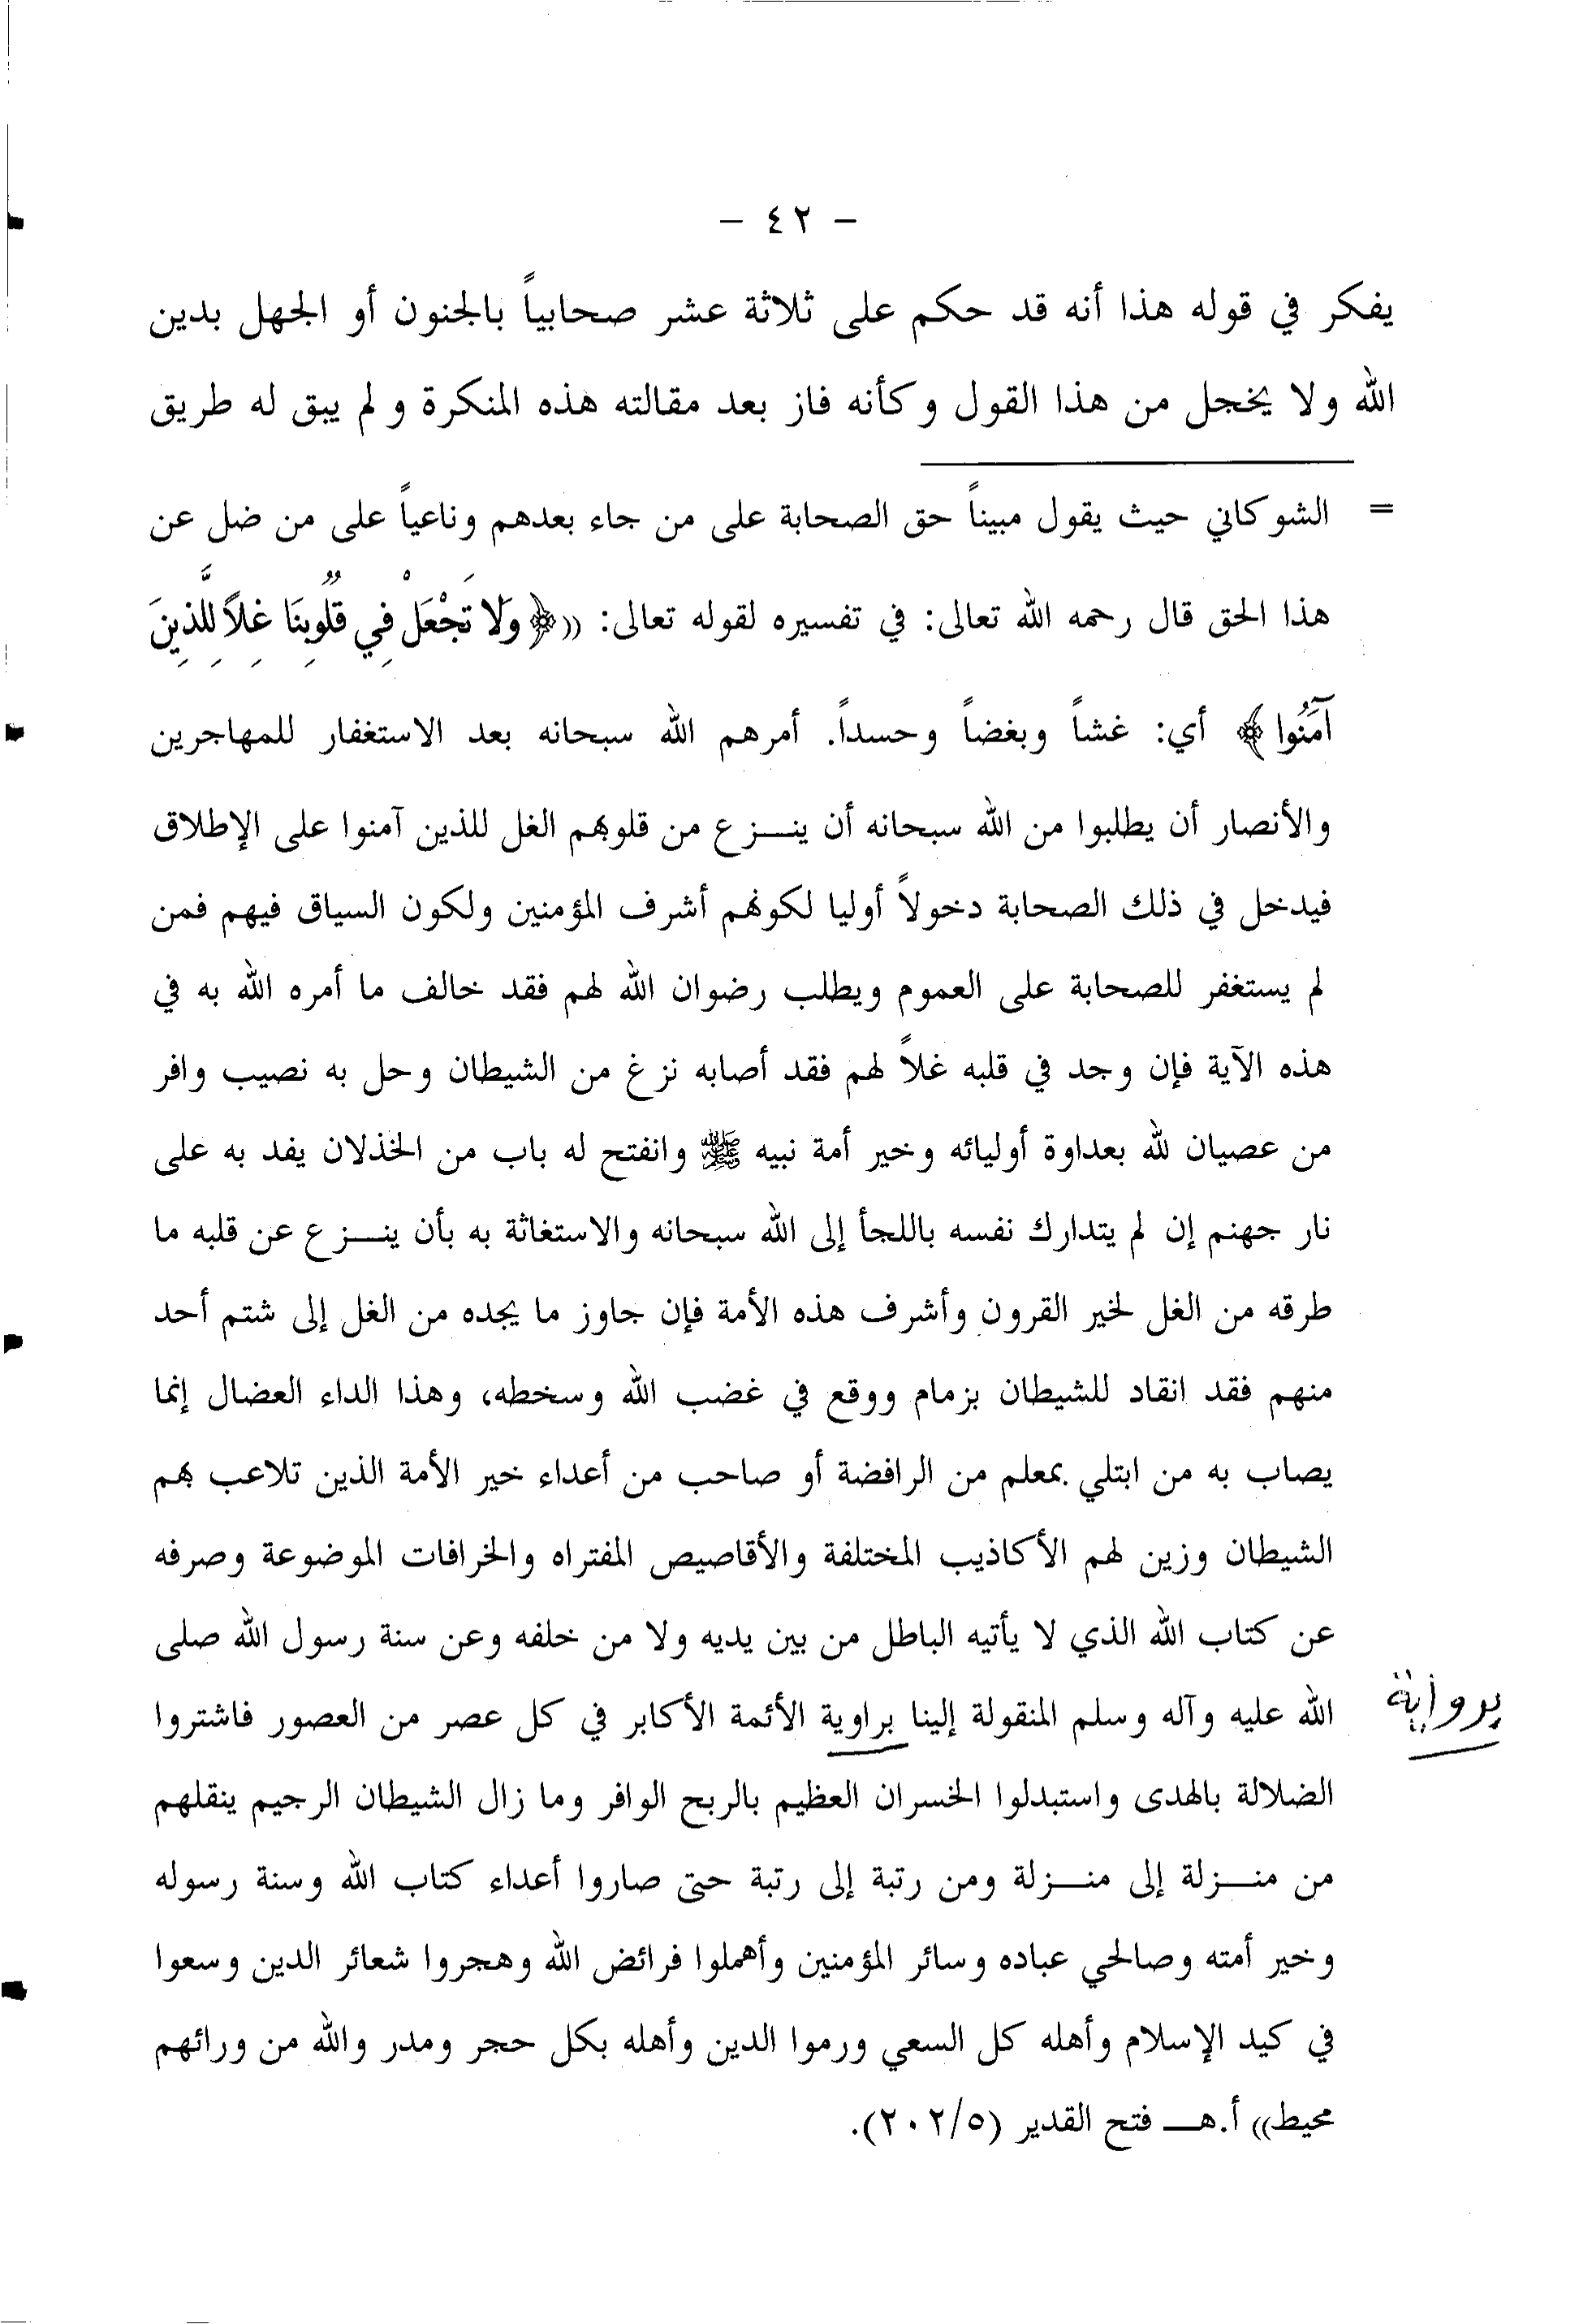 – ٤٢ –
يفكر في قوله هذا أنه قد حكم على ثلاثة عشر صحابياً بالجنون أو الجهل بدين
الله ولا يخجل من هذا القول وكأنه فاز بعد مقالته هذه المنكرة ولم يبق له طريق
= الشوكاني حيث يقول مبيناً حق الصحابة على من جاء بعدهم وناعياً على من ضل عن
هذا الحق قال رحمه الله تعالى: في تفسيره لقوله تعالى: ((﴿وَلَا تَجْعَلْ فِي قُلُوبِنَا غِلاًّ لِّلَّذِينَ
آمَنُوا﴾ أي: غشاً وبغضاً وحسداً. أمرهم الله سبحانه بعد الاستغفار للمهاجرين
والأنصار أن يطلبوا من الله سبحانه أن ينــزع من قلوبهم الغل للذين آمنوا على الإطلاق
فيدخل في ذلك الصحابة دخولاً أوليا لكونهم أشرف المؤمنين ولكون السياق فيهم فمن
لم يستغفر للصحابة على العموم ويطلب رضوان الله لهم فقد خالف ما أمره الله به في
هذه الآية فإن وجد في قلبه غلاً لهم فقد أصابه نزغ من الشيطان وحل به نصيب وافر
من عصيان لله بعداوة أوليائه وخير أمة نبيه ﷺ وانفتح له باب من الخذلان يفد به على
نار جهنم إن لم يتدارك نفسه باللجأ إلى الله سبحانه والاستغاثة به بأن ينــزع عن قلبه ما
طرقه من الغل لخير القرون وأشرف هذه الأمة فإن جاوز ما يجده من الغل إلى شتم أحد
منهم فقد انقاد للشيطان بزمام ووقع في غضب الله وسخطه، وهذا الداء العضال إنما
يصاب به من ابتلي بمعلم من الرافضة أو صاحب من أعداء خير الأمة الذين تلاعب بهم
الشيطان وزين لهم الأكاذيب المختلفة والأقاصيص المفتراه والخرافات الموضوعة وصرفه
عن كتاب الله الذي لا يأتيه الباطل من بين يديه ولا من خلفه وعن سنة رسول الله صلى
الله عليه وآله وسلم المنقولة إلينا براوية الأئمة الأكابر في كل عصر من العصور فاشتروا
برواية
الضلالة بالهدى واستبدلوا الخسران العظيم بالربح الوافر وما زال الشيطان الرجيم ينقلهم
من منــزلة إلى منــزلة ومن رتبة إلى رتبة حتى صاروا أعداء كتاب الله وسنة رسوله
وخير أمته وصالحي عباده وسائر المؤمنين وأهملوا فرائض الله وهجروا شعائر الدين وسعوا
في كيد الإسلام وأهله كل السعي ورموا الدين وأهله بكل حجر ومدر والله من ورائهم
محيط)) أ.هــ فتح القدير (٢٠٢/٥).